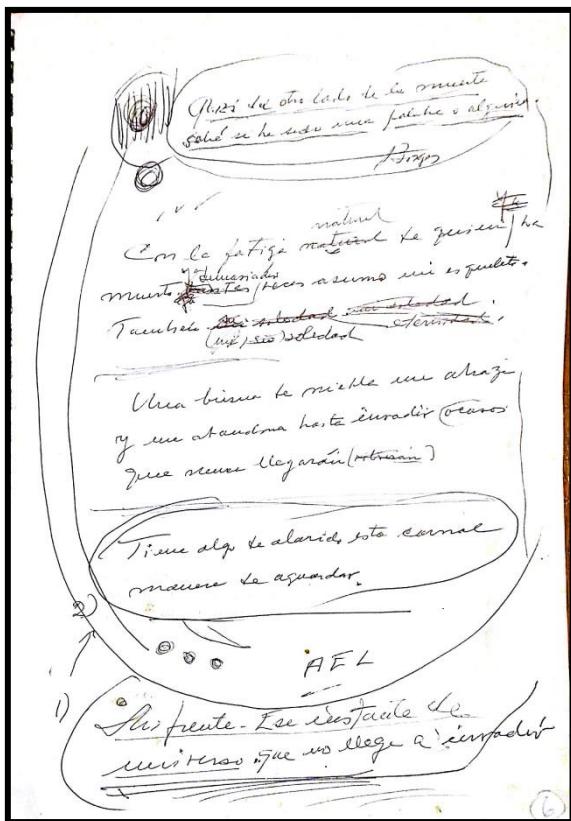 Quizá del otro lado de la muerte
sabré si he sido una palabra o alguien.
natural ya
Con la fatiga natural de quien ha
ya demasiadas
muerto tantas veces asumo mi esqueleto.
También mi soledad
(mi, su) soledad eternidad.
Una bruma de niebla me abraza
y me abandona hasta invadir (ocasos
que nunca llegarán
Tiene algo de alarido esta carnal
manera de aguardar.
2)
AEL
1) frente. Ese instante de
universo que no llegé a invadir
6